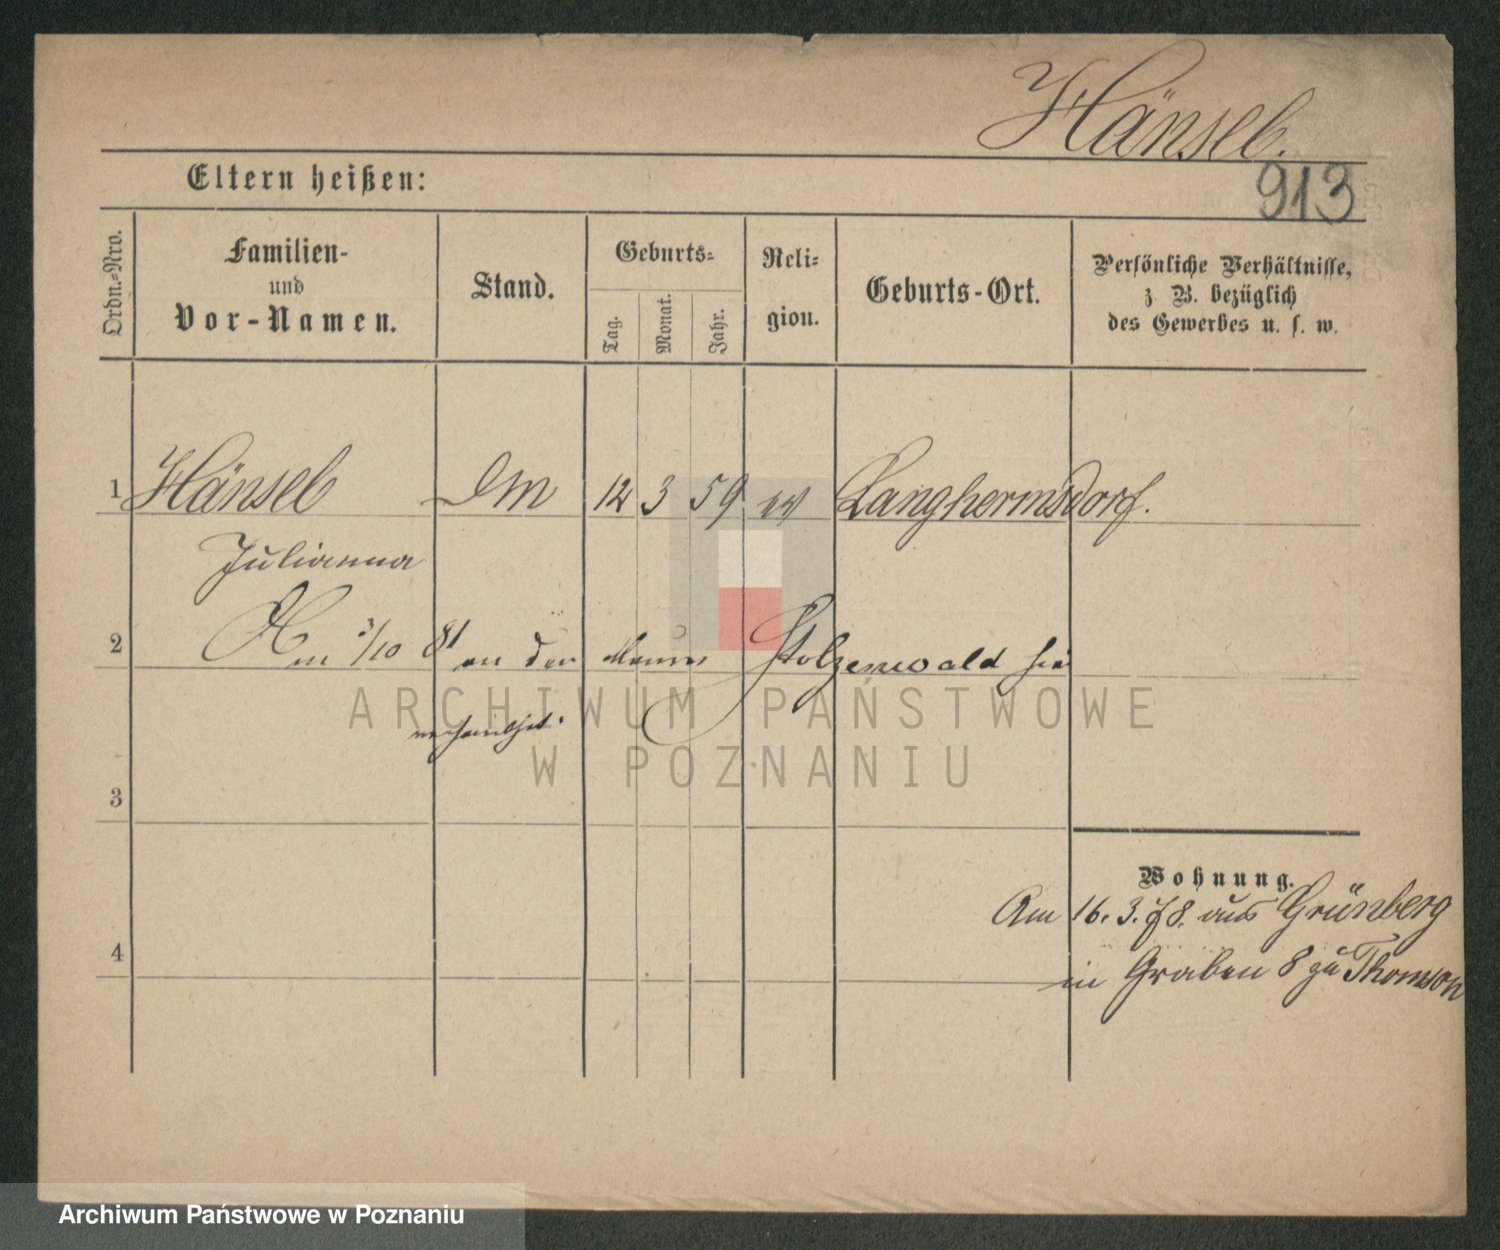 Hänsel.
913
Eltern heißen:
Ordn.=Nro.
Familien-
und
Vor-Namen.
Stand.
Geburts=
Tag.
Monat.
Jahr.
Reli=
gion.
Geburts-Ort.
Persönliche Verhältnisse,
z. B. bezüglich
des Gewerbes u. s. w.
1 Hänsel 12 3 59 ev Langhermsdorf.
Julianna
2 Am 3/10 81 an den Stolzenwald hier
verheirathet.
ARCHIWUM PAŃSTWOWE
W POZNANIU
3
Wohnung.
Am 16. 3. 78. aus Grünberg
4 in Graben 8 zu Thomson
Archiwum Państwowe w Poznaniu